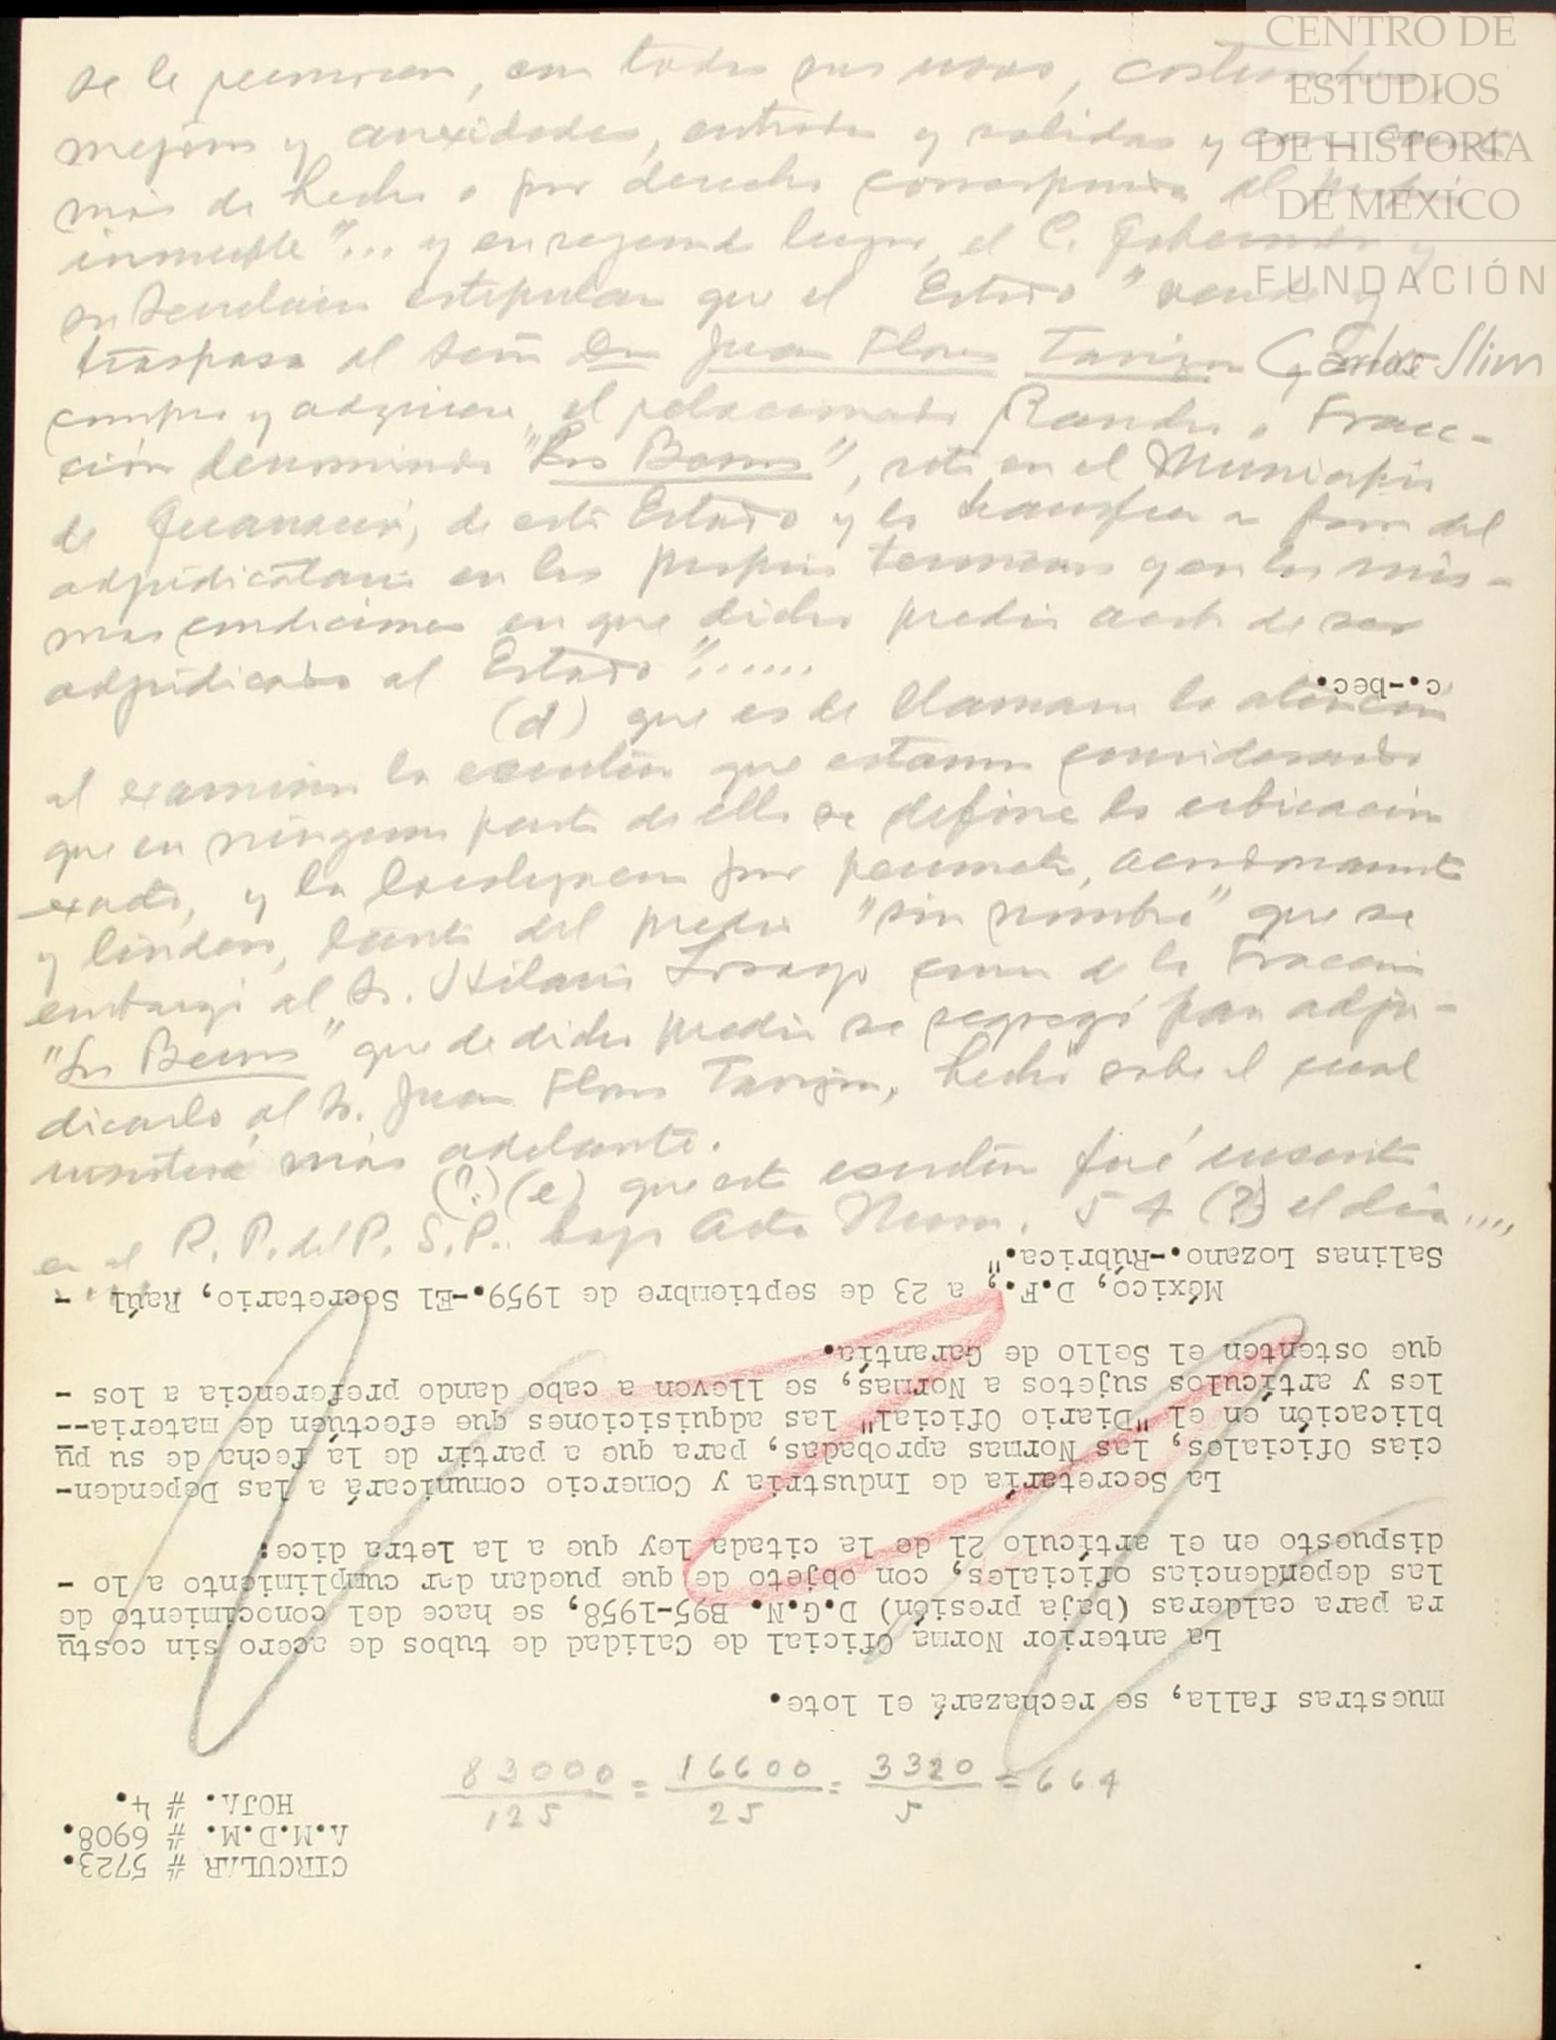 se le reconocen, con todos sus usos, costumbres,
mejoras y anexidades, entradas y salidas y con cuanto
más de hecho o por derecho corresponda al predio
inmueble"... y en seguida luego, el C. Gobernador y
su Secretario estipulan que el "Estado" vende y
traspasa al señor Dn Juan Flores Tavizon y éste
compra y adquiere, el relacionado Rancho o Frac-
ción denominada "Los Baños", sita en el Municipio
de Guanaceví, de este Estado y lo transfiere a favor del
adjudicatario en los propios terminos y en las mis-
mas condiciones en que dicho predio acaba de ser
adjudicado al Estado"......
(d) que es de llamar la atención
al examinar la escritura que estamos considerando
que en ninguna parte de ella se define la ubicación
exacta, y la localización por perimetro, acordonamiento
y linderos, tanto del predio "sin nombre" que se
embargó al Sr. Hilario Lozoya como de la Fracción
"Los Baños" que de dicho predio se segregó para adju-
dicarlo al Sr. Juan Flores Tavizon, hecho sobre el cual
insistiré más adelante.
(e) que esta escritura fué inscrita
en el R. P. del P. S. P.. bajo Acta Num. 54 (?) el día....
CIRCULAR # 5723.
A.M.D.M. # 6908.
HOJA. # 4.
83000/125 = 16600/25 = 3320/5 = 664
muestras falla, se rechazará el lote.
La anterior Norma Oficial de Calidad de tubos de acero sin costu
ra para calderas (baja presión) D.G.N. B95-1958, se hace del conocimiento de
las dependencias oficiales, con objeto de que puedan dar cumplimiento a lo -
dispuesto en el artículo 21 de la citada ley que a la letra dice:
La Secretaría de Industria y Comercio comunicará a las Dependen-
cias Oficiales, las Normas aprobadas, para que a partir de la fecha de su pu
blicación en el "Diario Oficial" las adquisiciones que efectúen de materia--
les y artículos sujetos a Normas, se lleven a cabo dando preferencia a los -
que ostenten el Sello de Garantía.
México, D.F., a 23 de septiembre de 1959.-El Secretario, Raúl -
Salinas Lozano.-Rúbrica."
c.-bec.
CENTRO DE
ESTUDIOS
DE HISTORIA
DE MÉXICO
FUNDACIÓN
Carlos Slim